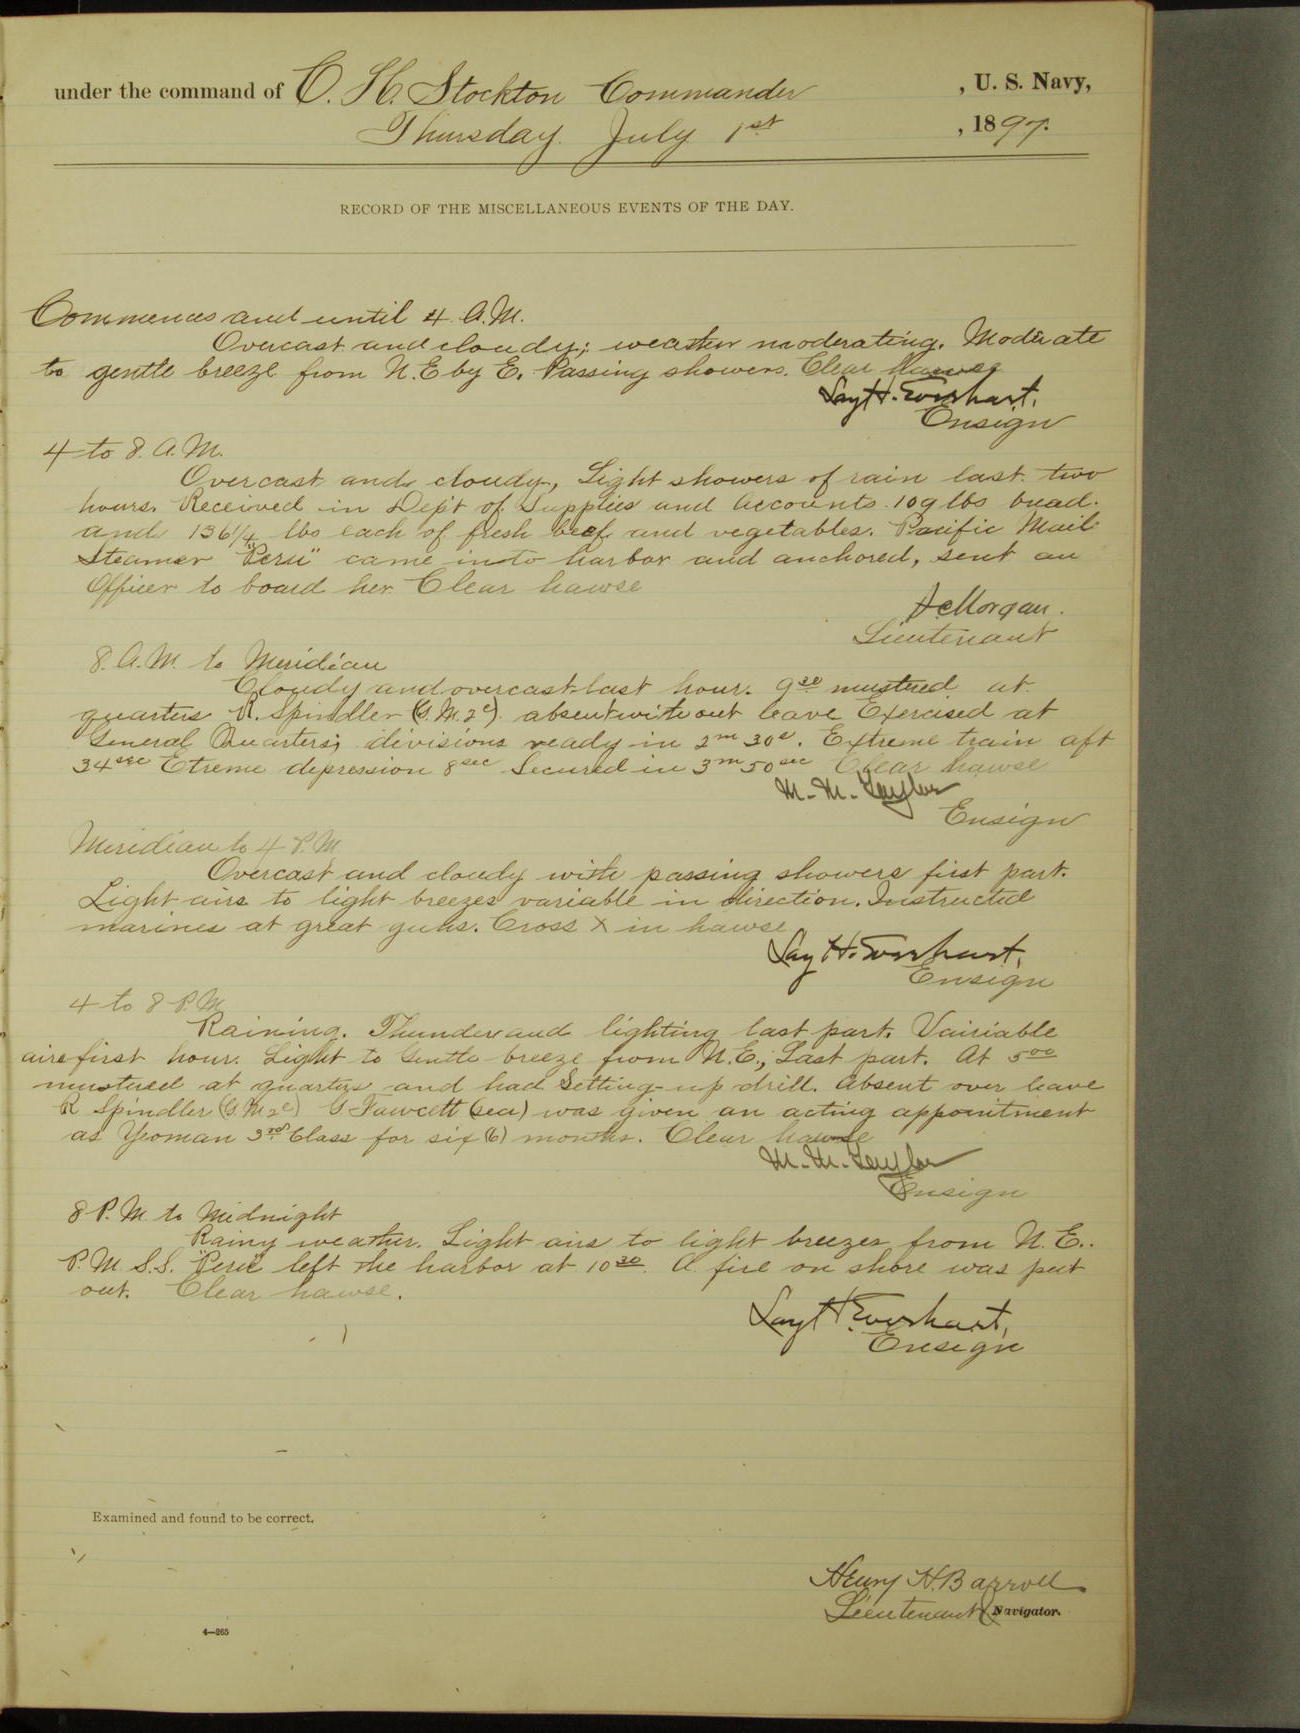 under the command of C. H. Stockton Commander , U. S. Navy,
Thursday July 1st , 1897.
RECORD OF THE MISCELLANEOUS EVENTS OF THE DAY.
Commences and until 4 A.M.
Overcast and cloudy; weather moderating. Moderate
to gentle breeze from N.E by E. Passing showers. Clear hawse
Lay H. Everhart.
Ensign
4 to 8. A.M.
Overcast and cloudy, Light showers of rain last two
hours. Received in Dep't of Supplies and Accounts 109 lbs bread.
and 136 1/4 lbs each of fresh beef and vegetables. Pacific Mail
Steamer "Peru" came into harbor and anchored, sent an
Officer to board her Clear hawse
Morgan.
Lieutenant
8. A.M. to Meridian
Cloudy and overcast last hour. 9 30 mustered at
quarters R. Spindler (G.M.2c) absent without leave Exercised at
General Quarters; divisions ready in 2m 30s. Extreme train aft
34sec Etreme depression 8sec Secured in 3m 50sec Clear hawse
M. M. Taylor
Ensign
Meridian to 4 P.M.
Overcast and cloudy with passing showers first part.
Light airs to light breezes variable in direction. Instructed
marines at great guns. Cross X in hawse
Lay H. Everhart,
Ensign
4 to 8 P.M
Raining. Thunder and lighting last part. Vairiable
airs first hour. Light to Gentle breeze from N.E., Last part. At 5 00
mustered at quarters and had Setting-up drill. Absent over leave
R Spindler (G.M2c) G Fawcett (sea) was given an acting appointment
as Yeoman 3rd Class for six (6) months. Clear hawse
M. M. Taylor
Ensign
8 P.M. to Midnight
Rainy weather. Light airs to light breezes from N.E..
P.M. S.S. "Peru" left the harbor at 10 30. A fire on shore was put
out. Clear hawse.
Lay H. Everhart,
Ensign
Examined and found to be correct.
Henry H. Barroll
Lieutenant Navigator.
4—265